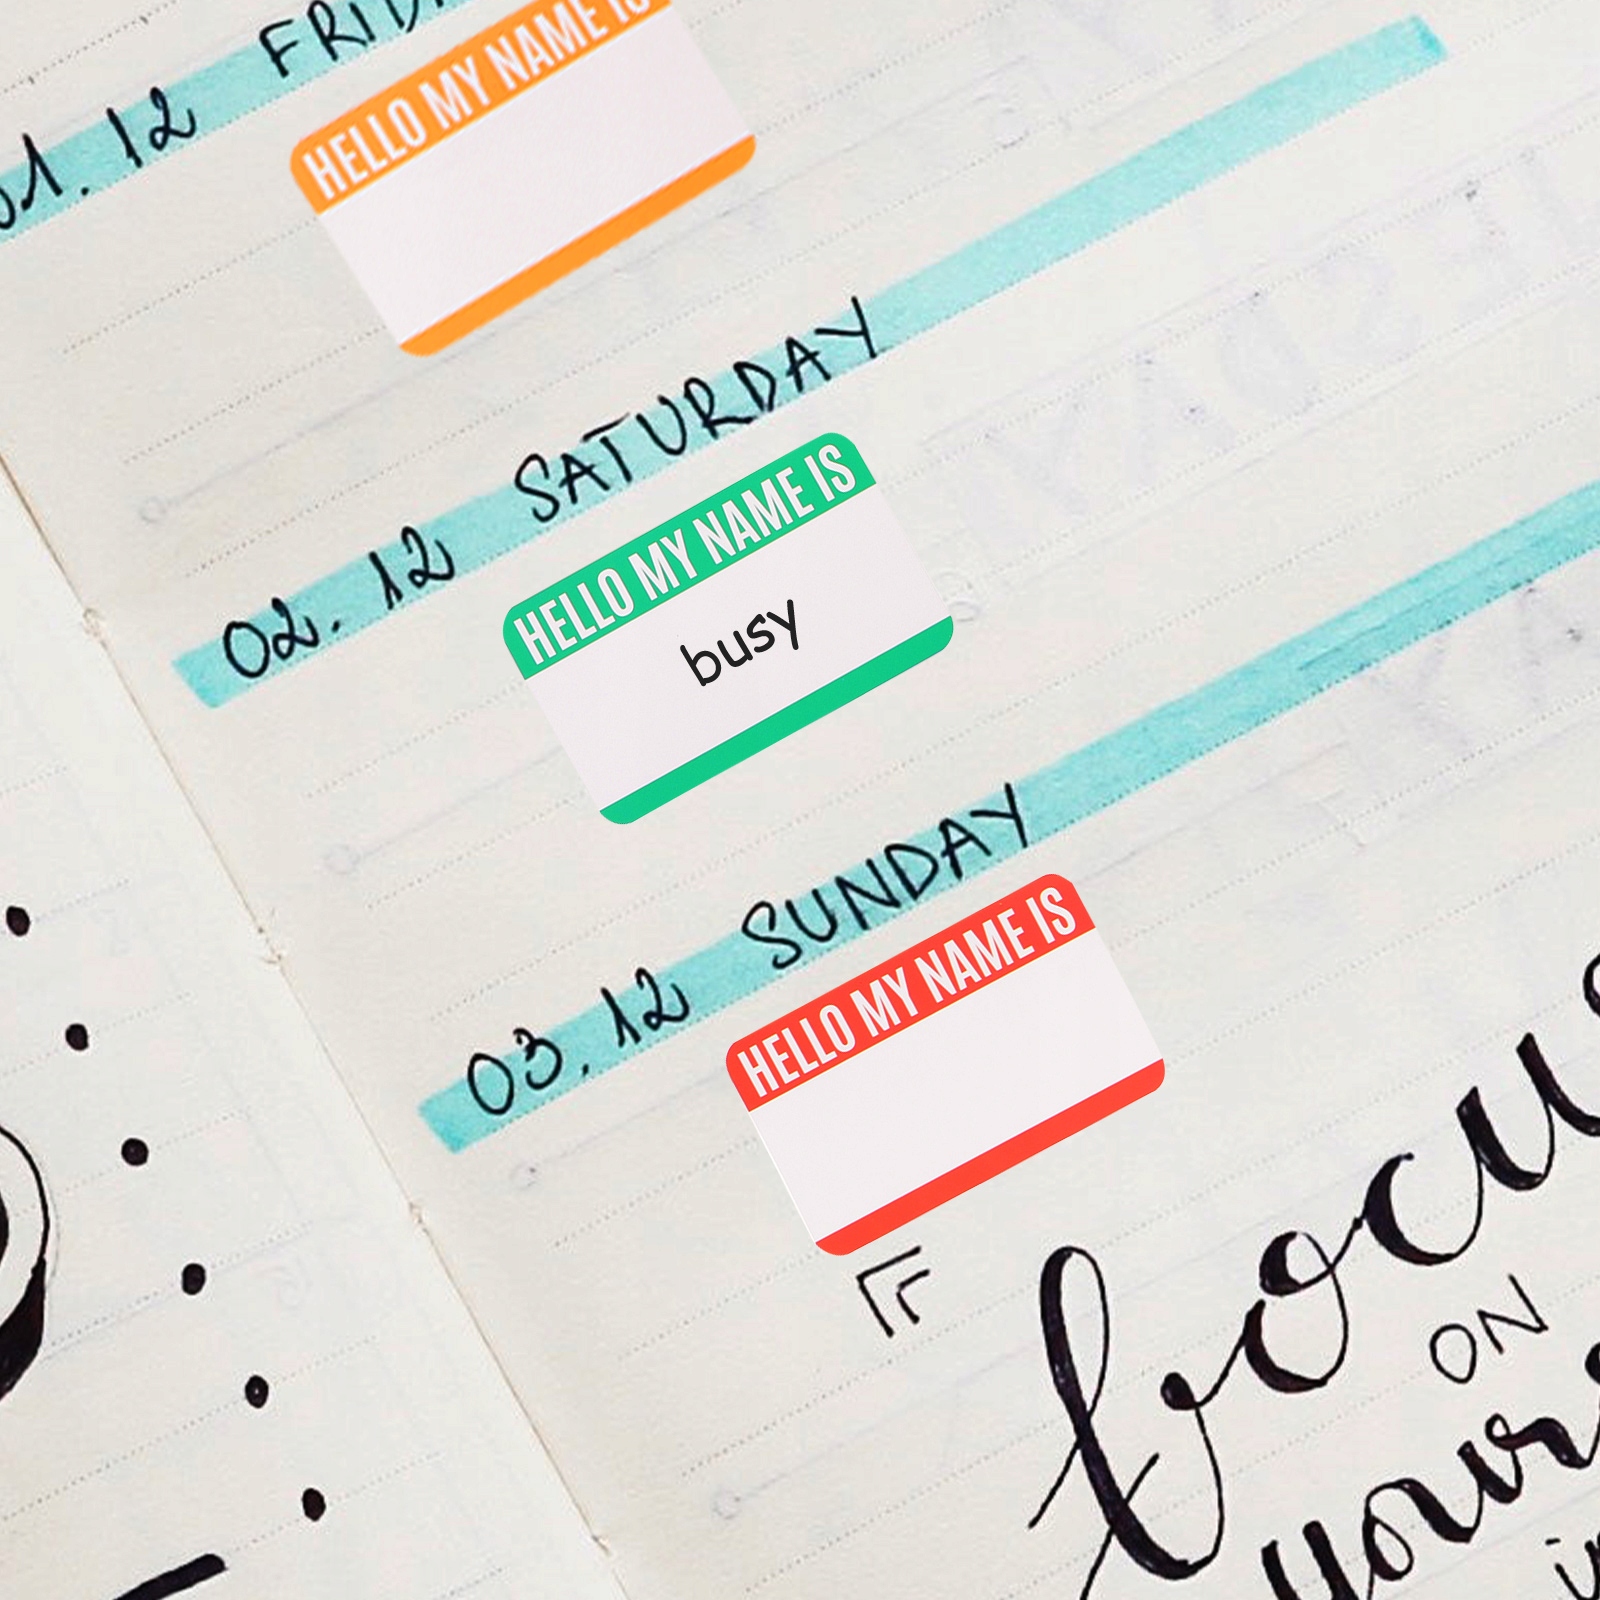 01.12
HELLO MY NAME IS
02.12 SATURDAY
HELLO MY NAME IS
busy
03.12 SUNDAY
HELLO MY NAME IS
ON